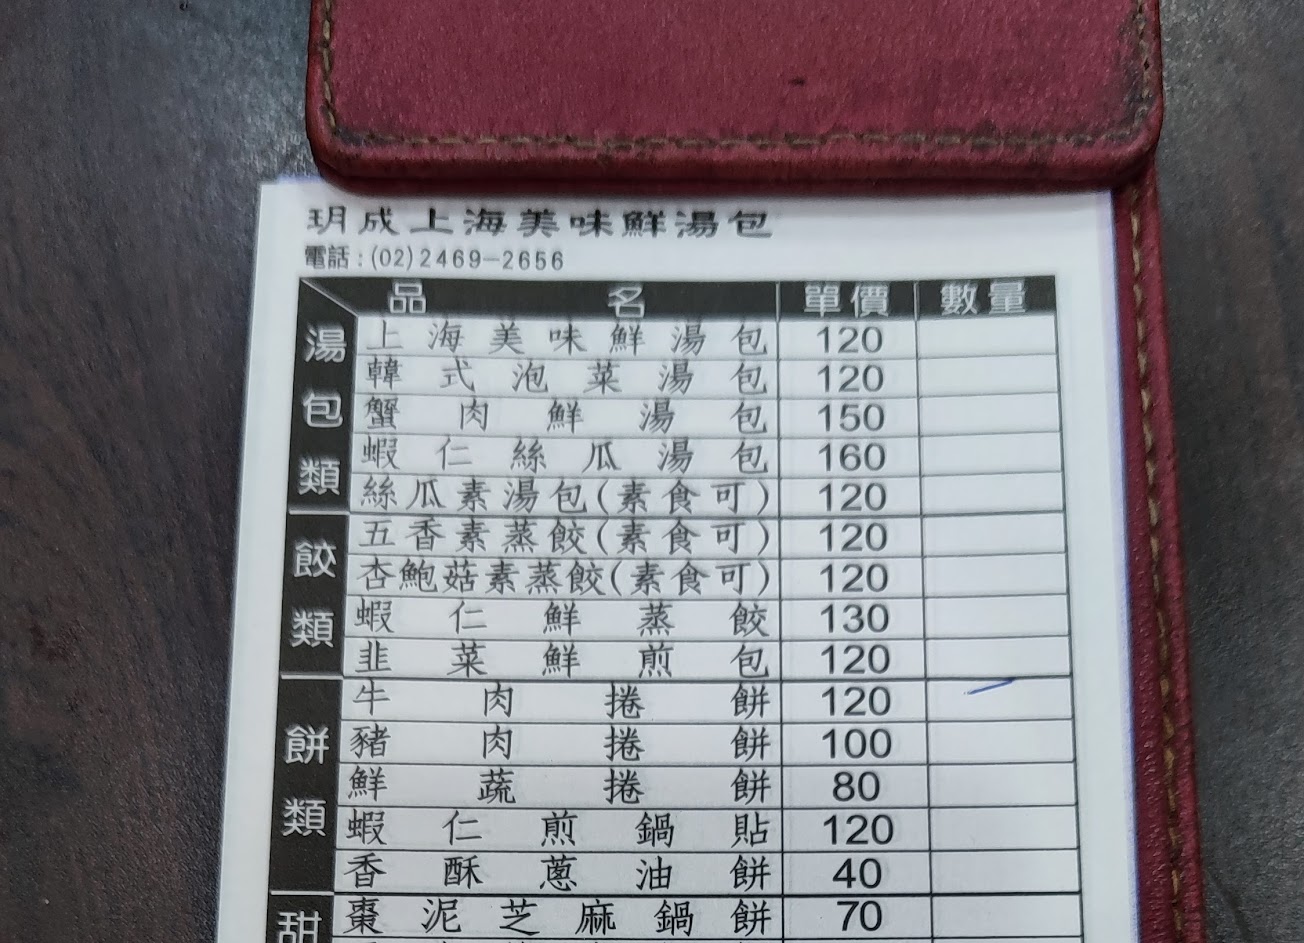 玥成上海美味鮮湯包
電話:(02)2469-2656
品名 單價 數量
湯包類
上海美味鮮湯包 120
韓式泡菜湯包 120
蟹肉鮮湯包 150
蝦仁絲瓜湯包 160
絲瓜素湯包(素食可) 120
餃類
五香素蒸餃(素食可) 120
杏鮑菇素蒸餃(素食可) 120
蝦仁鮮蒸餃 130
韭菜鮮煎包 120
餅類
牛肉捲餅 120
豬肉捲餅 100
鮮蔬捲餅 80
蝦仁煎鍋貼 120
香酥蔥油餅 40
甜
棗泥芝麻鍋餅 70